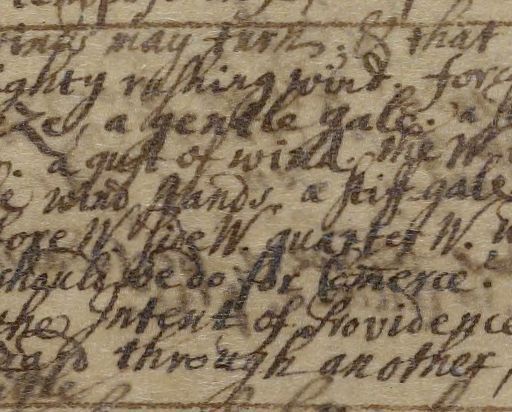 may turn, & that
ighty rushing wind. fore
eze, a gentle gale. a
. a gust of wind. the W
e wind stands, a stiff gale
fore W side W. quarter W. w
should we do for Comerce.
the Intent of Providence
through another,